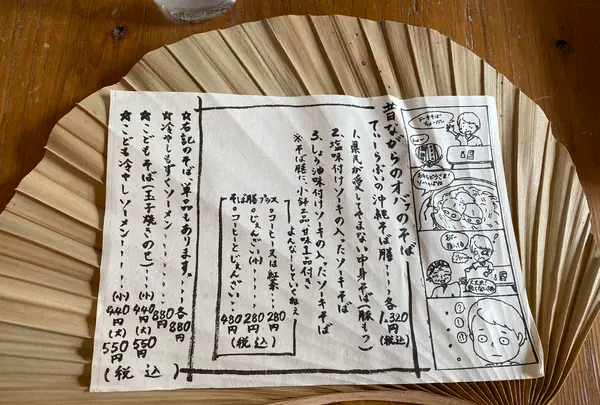 ソーキそば
ちょーだい
昔ながらのオバァのそば
てぃーらぶいの沖縄そば膳・・・各1,320円(税込)
1.県民が愛してやまない中身そば(豚もつ)
2.塩味付けソーキの入ったソーキそば
3.しょう油味付けソーキの入ったソーキそば
※そば膳に、小鉢2品 甘味1品付き
よんなーしていってねぇ
そば膳プラス
○コーヒー又は紅茶・・・280円
○じぇんざい(小)・・・・280円
○コーヒーとじぇんざい・・480円
(税込)
☆右記のそば、単品もあります。・・・各880円
☆冷やしもずくソーメン・・・・880円
☆こどもそば(玉子焼きのせ)・・・(小)440円(大)550円
☆こども冷やしソーメン・・・・・(小)440円(大)550円
(税込)